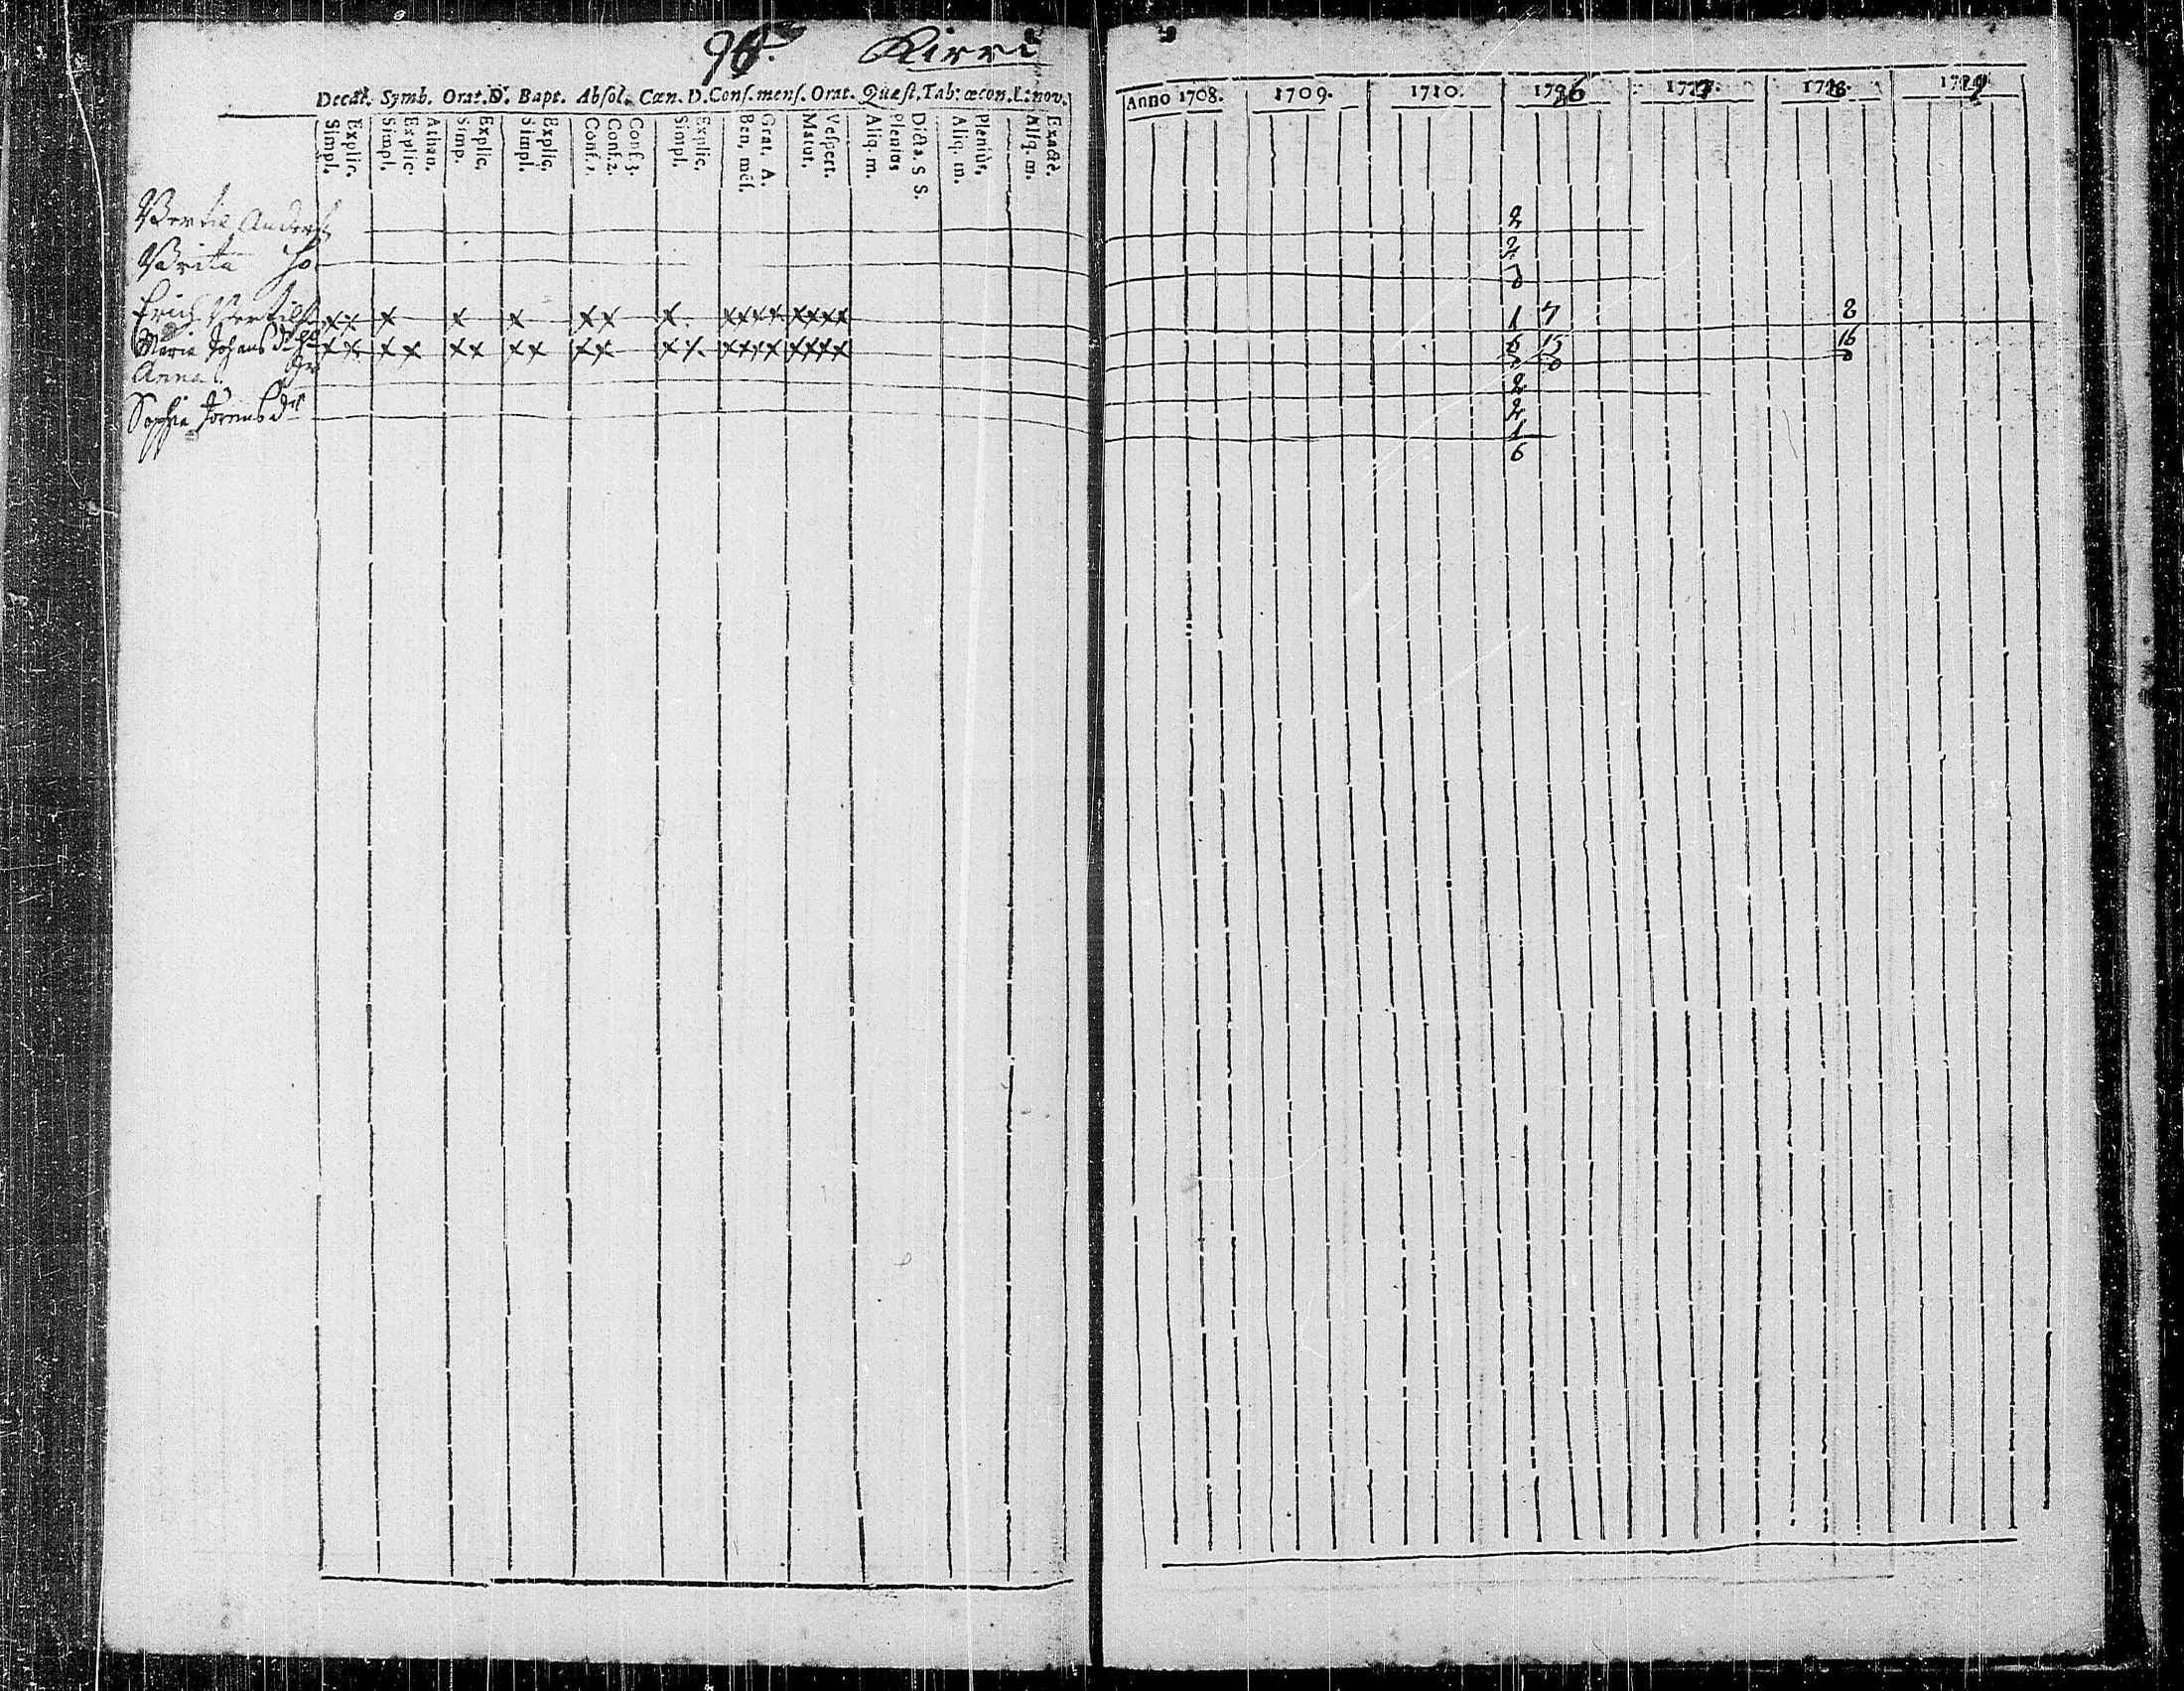 Kirri
Decal. Symb. Orat. D. Bapt. Absol. Cœn. D. Conf. mens. Orat. Quæst. Tab: œcon. L: nov.
Simpl. Explic. Simpl. Explic. Athan. Simp. Explic. Simpl. Explic. Conf. 1. Conf. 2. Conf. 3. Simpl. Explic. Ben. mẽs. Grat. A. Matut. Vespert. Aliq. m. Plenius Dicta. S S. Aliq. m. Pleniùs. Aliq. m. Exactè.
Bertil Anders
Brita ho
Erich Bertils x x x x x x x x x x x x x x x x
Maria Johans dr hu x x x x x x x x x x x x x x x x x x x x
Anna
Sophia Jörens dr
Anno 1708. 1709. 1710. 1726 1727. 1728. 1729
2
2
8
1 7 8
6 15 16
8 8 8
2
2
1
6